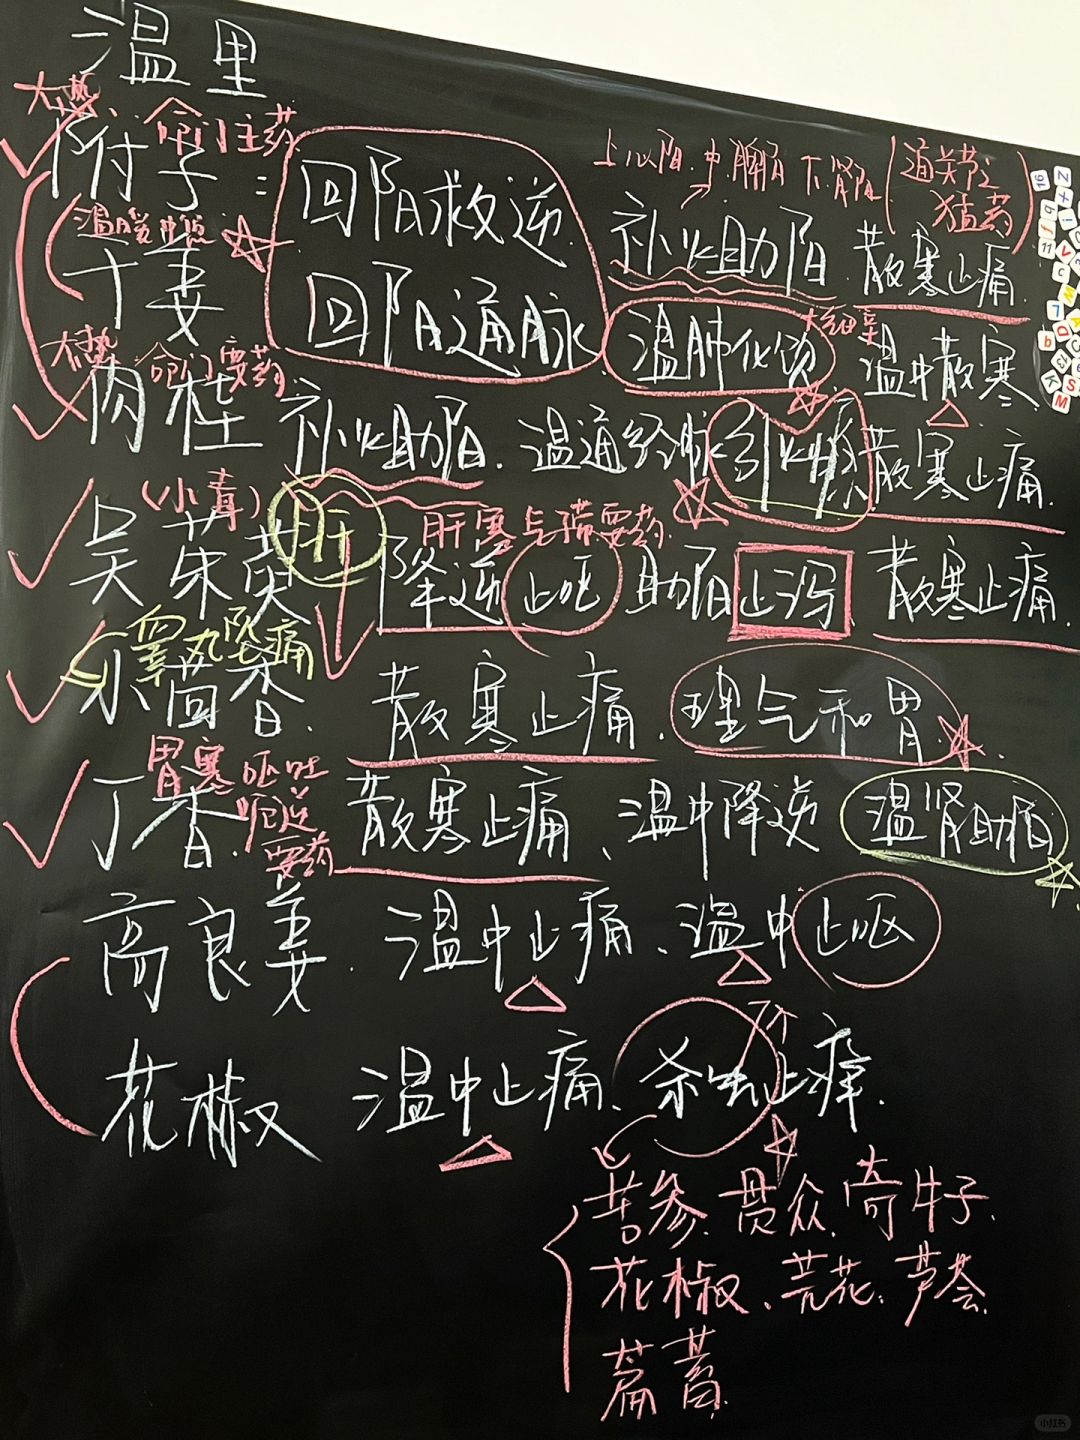 温里
大热
附子：
命门主药
回阳救逆
上心阳.中脾阳 下肾阳
(通关节之猛药)
补火助阳.散寒止痛.
温暖中焦
干姜
回阳通脉
温肺化饮
温中散寒.
大热
命门要药
肉桂
补火助阳.温通经脉
引火归源
散寒止痛.
(小毒)
吴茱萸
肝
肝寒气滞要药
降逆止呕 助阳止泻 散寒止痛.
睾丸坠痛
小茴香.
散寒止痛.理气和胃.
胃寒呕吐
呃逆
要药
丁香.
散寒止痛、温中降逆
温肾助阳
高良姜.温中止痛、温中止呕
花椒 温中止痛.杀虫止痒.
苦参.贯众.牵牛子.
花椒、芫花.芦荟.
萹蓄.
小红书